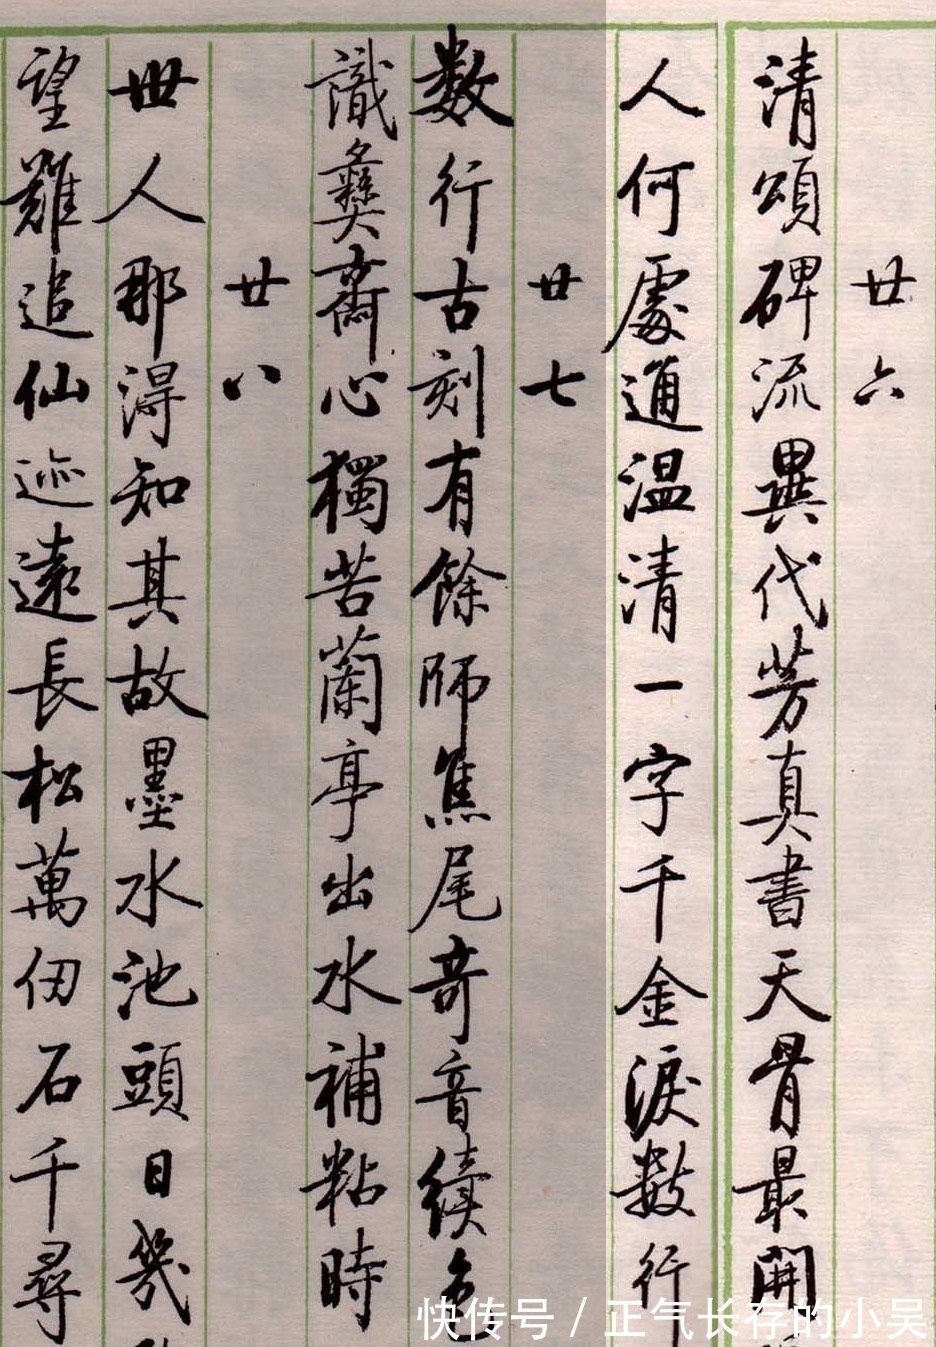 廿六
清頌碑流異代芳真書天骨最開
人何處通温清一字千金淚數行
廿七
数行古刻有餘師焦尾奇音續色
識彝齋心獨苦蘭亭出水補粘時
廿八
世人那得知其故墨水池頭日幾
望難追仙迹遠長松萬仞石千尋
快传号 / 正气长存的小吴